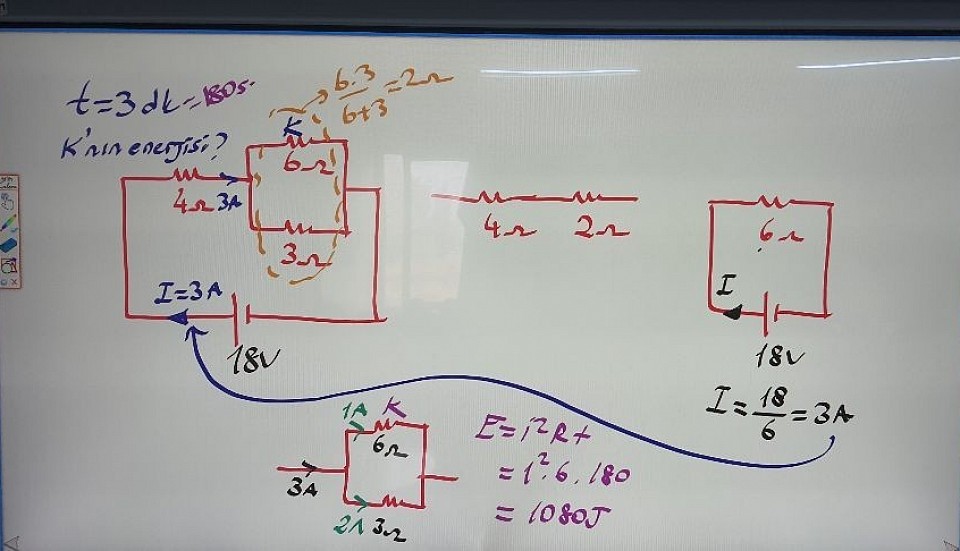 t=3 dk=180s.
K'nın enerjisi?
6.3/6+3=2Ω
K
6Ω
4Ω 3A
3Ω
I=3A
18V
4Ω 2Ω
6Ω
I
18V
I=18/6=3A
1A K
6Ω
3A
2A 3Ω
E=i²Rt
=1².6.180
=1080J